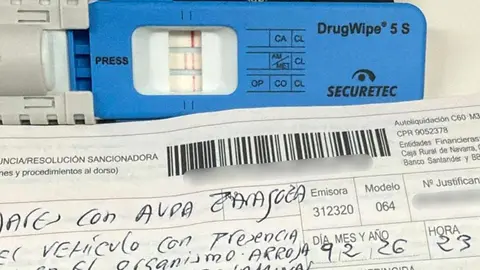 DrugWipe® 5 S
CA CL
PRESS
AM/MET CL
OP CO CL
SECURETEC
Autoliquidación C60 M3
CPR 9052378
Entidades Financieras:
Caja Rural de Navarra,
Banco Santander y BB
UNCIA/RESOLUCIÓN SANCIONADORA
nes y procedimientos al dorso)
Emisora
312320
Modelo
064
Nº Justifican
CON AVDA ZARAGOZA
EL VEHÍCULO CON PRESENCIA
EN EL ORGANISMO. ARROJA
DÍA, MES Y AÑO
9 2 26
HORA
23